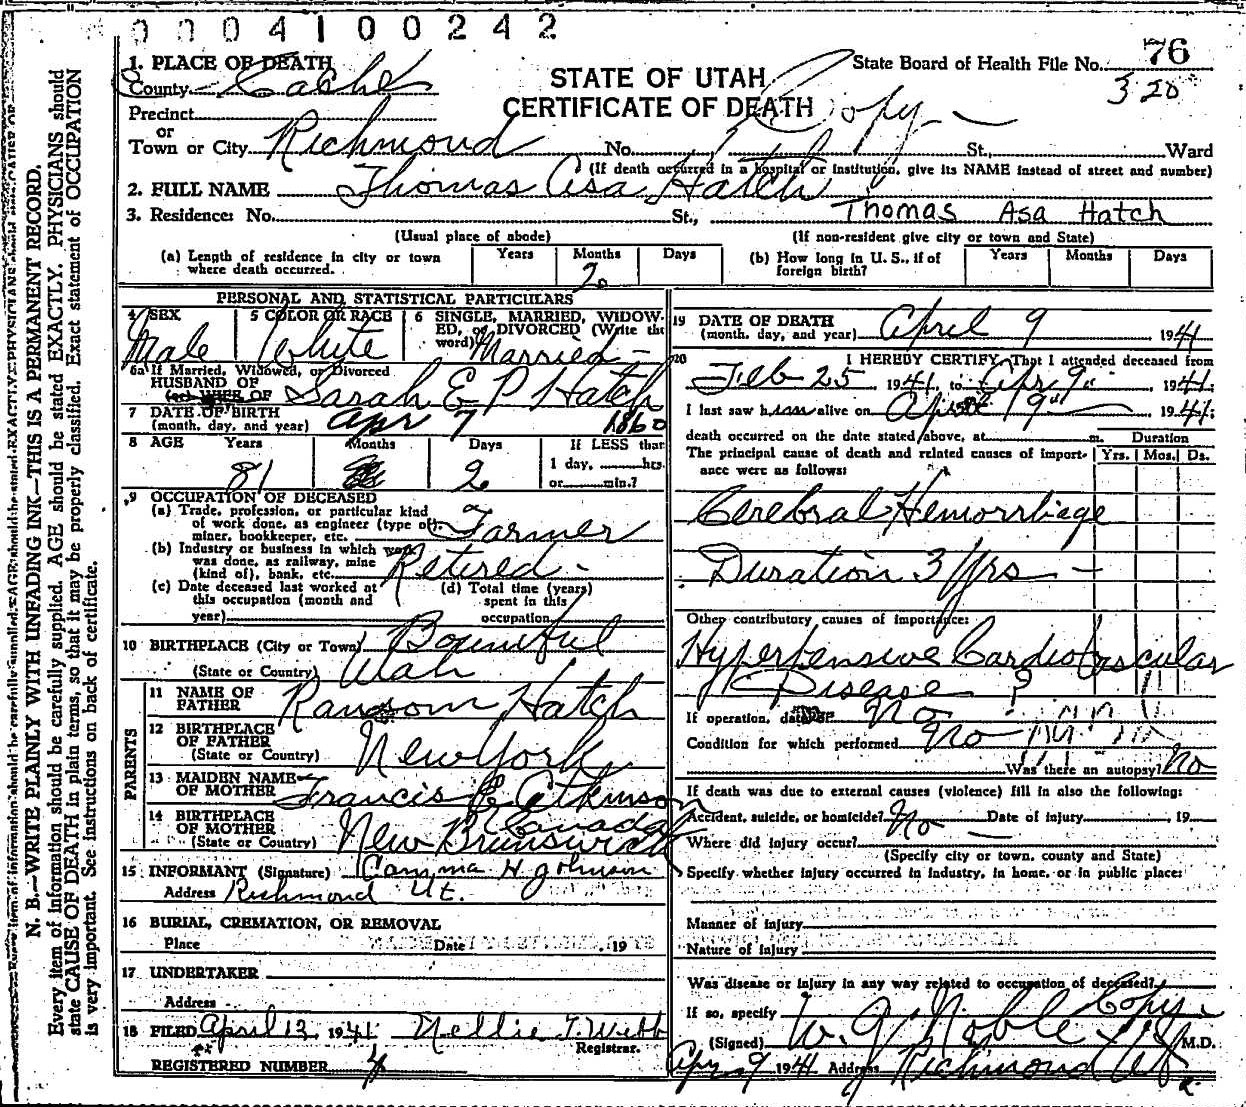 0004100242
1. PLACE OF DEATH
County Cache
STATE OF UTAH
CERTIFICATE OF DEATH
Copy
State Board of Health File No. 76
320
Precinct
or
Town or City Richmond No. St., Ward
(If death occurred in a hospital or institution, give its NAME instead of street and number)
2. FULL NAME Thomas Asa Hatch
3. Residence: No. St., Thomas Asa Hatch
(Usual place of abode) (If non-resident give city or town and State)
(a) Length of residence in city or town where death occurred. Years Months 2 Days
(b) How long in U. S., if of foreign birth? Years Months Days
PERSONAL AND STATISTICAL PARTICULARS
4 SEX Male
5 COLOR OR RACE White
6 SINGLE, MARRIED, WIDOWED, or DIVORCED (Write the word) Married
6a If Married, Widowed, or Divorced
HUSBAND OF
(or) WIFE OF Sarah E P Hatch
7 DATE OF BIRTH
(month, day, and year) Apr 7 1860
8 AGE Years 81 Months Days 2 If LESS than
1 day, hrs.
or min.?
9 OCCUPATION OF DECEASED
(a) Trade, profession, or particular kind
of work done, as engineer (type of),
miner, bookkeeper, etc. Farmer
(b) Industry or business in which work
was done, as railway, mine
(kind of), bank, etc. Retired
(c) Date deceased last worked at
this occupation (month and
year)
(d) Total time (years)
spent in this
occupation
10 BIRTHPLACE (City or Town) Bountiful
(State or Country) Utah
PARENTS
11 NAME OF
FATHER Ransom Hatch
12 BIRTHPLACE
OF FATHER
(State or Country) New York
13 MAIDEN NAME
OF MOTHER Francis E Atkinson
14 BIRTHPLACE
OF MOTHER Canada
(State or Country) New Brunswick
15 INFORMANT (Signature) Comma H Johnson
Address Richmond Ut.
16 BURIAL, CREMATION, OR REMOVAL
Place Date , 19
17 UNDERTAKER
Address
18 FILED April 12 1941 Nellie T. Webb
Registrar.
REGISTERED NUMBER 4
19 DATE OF DEATH
(month, day, and year) April 9 1941
20 I HEREBY CERTIFY, That I attended deceased from
Feb 25, 1941, to Apr 9, 1941;
I last saw him alive on April 9th 1941;
death occurred on the date stated above, at m. Duration
The principal cause of death and related causes of importance were as follows: Yrs. Mos. Ds.
Cerebral Hemorrhage
Duration 3 yrs
Other contributory causes of importance:
Hypertensive Cardiovascular
Disease ?
If operation, date of No
Condition for which performed No
Was there an autopsy? No
If death was due to external causes (violence) fill in also the following:
Accident, suicide, or homicide? No Date of injury , 19
Where did injury occur?
(Specify city or town, county and State)
Specify whether injury occurred in industry, in home, or in public place:
Manner of injury
Nature of injury
Was disease or injury in any way related to occupation of deceased?
If so, specify Copy
(Signed) W. G. Noble M.D.
Apr 9 1941 Address Richmond Ut
N. B.—WRITE PLAINLY WITH UNFADING INK—THIS IS A PERMANENT RECORD.
Every item of information should be carefully supplied. AGE should be stated EXACTLY. PHYSICIANS should
state CAUSE OF DEATH in plain terms, so that it may be properly classified. Exact statement of OCCUPATION
is very important. See instructions on back of certificate.